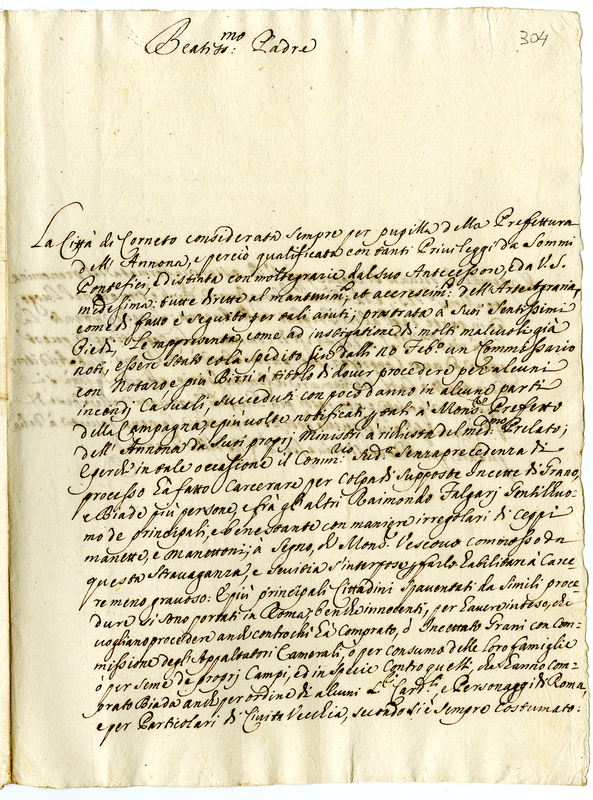 304
Beatiss:mo Padre
La Città di Corneto considerata sempre per pupilla della Prefettura
dell'Annona, e perciò qualificata con tanti Privileggi da Sommi
Pontefici, e distinta con molte grazie dal Suo Antecessore, e da V. S.
medesima: tutte dirette al mantenim:o, et accrescim:o dell'Arte Agraria,
come di fatto è seguito per tali aiuti; prostrata a Suoi Santissimi
Piedi, Le rappresenta, come ad instigatione di molti malevoli già
noti, essere stato colà spedito sin dalli 20 Feb:o un Commissario
con Notaro, e più Birri a titolo di dover procedere per alcuni
incendj Casuali, succeduti con poco danno in alcune parti
della Campagna, e più volte notificati, stati a Mons:r Prefetto
dell'Annona da Suoi proprj Ministri a richiesta del med:mo Prelato;
E perche in tale occasione il Comm:rio Sud:o Senza precedenza di
processo hà fatto Carcerare per colpa di supposte Incette di Grano,
e Biade più persone, e frà gl'altri Raimondo Falgarj Gentilhuo-
mo de principali, e benestante con maniere irregolari di Ceppi
manette, e Manottoni; a Segno, che Mons:r Vescovo commosso da
questa Stravaganza, e Sevitia s'interpose per farlo habilitare à Carce-
re meno gravoso: E più principali Cittadini Spaventati da Simili proce-
dure si sono portati in Roma, benche innocenti, per havere inteso, che
vogliano procedere anche contro chi hà comprato, ò Incettato Grani con com-
missione degli Appaltatori Camerali, ò per consumo delle loro famiglie
ò per seme de proprj Campi, ed in specie Contro quelli, che hanno com-
prato Biada anche per ordine di alcuni S:ri Card:li, e Personaggi di Roma,
e per Particolari di Civita Vecchia, secondo si è sempre costumato: